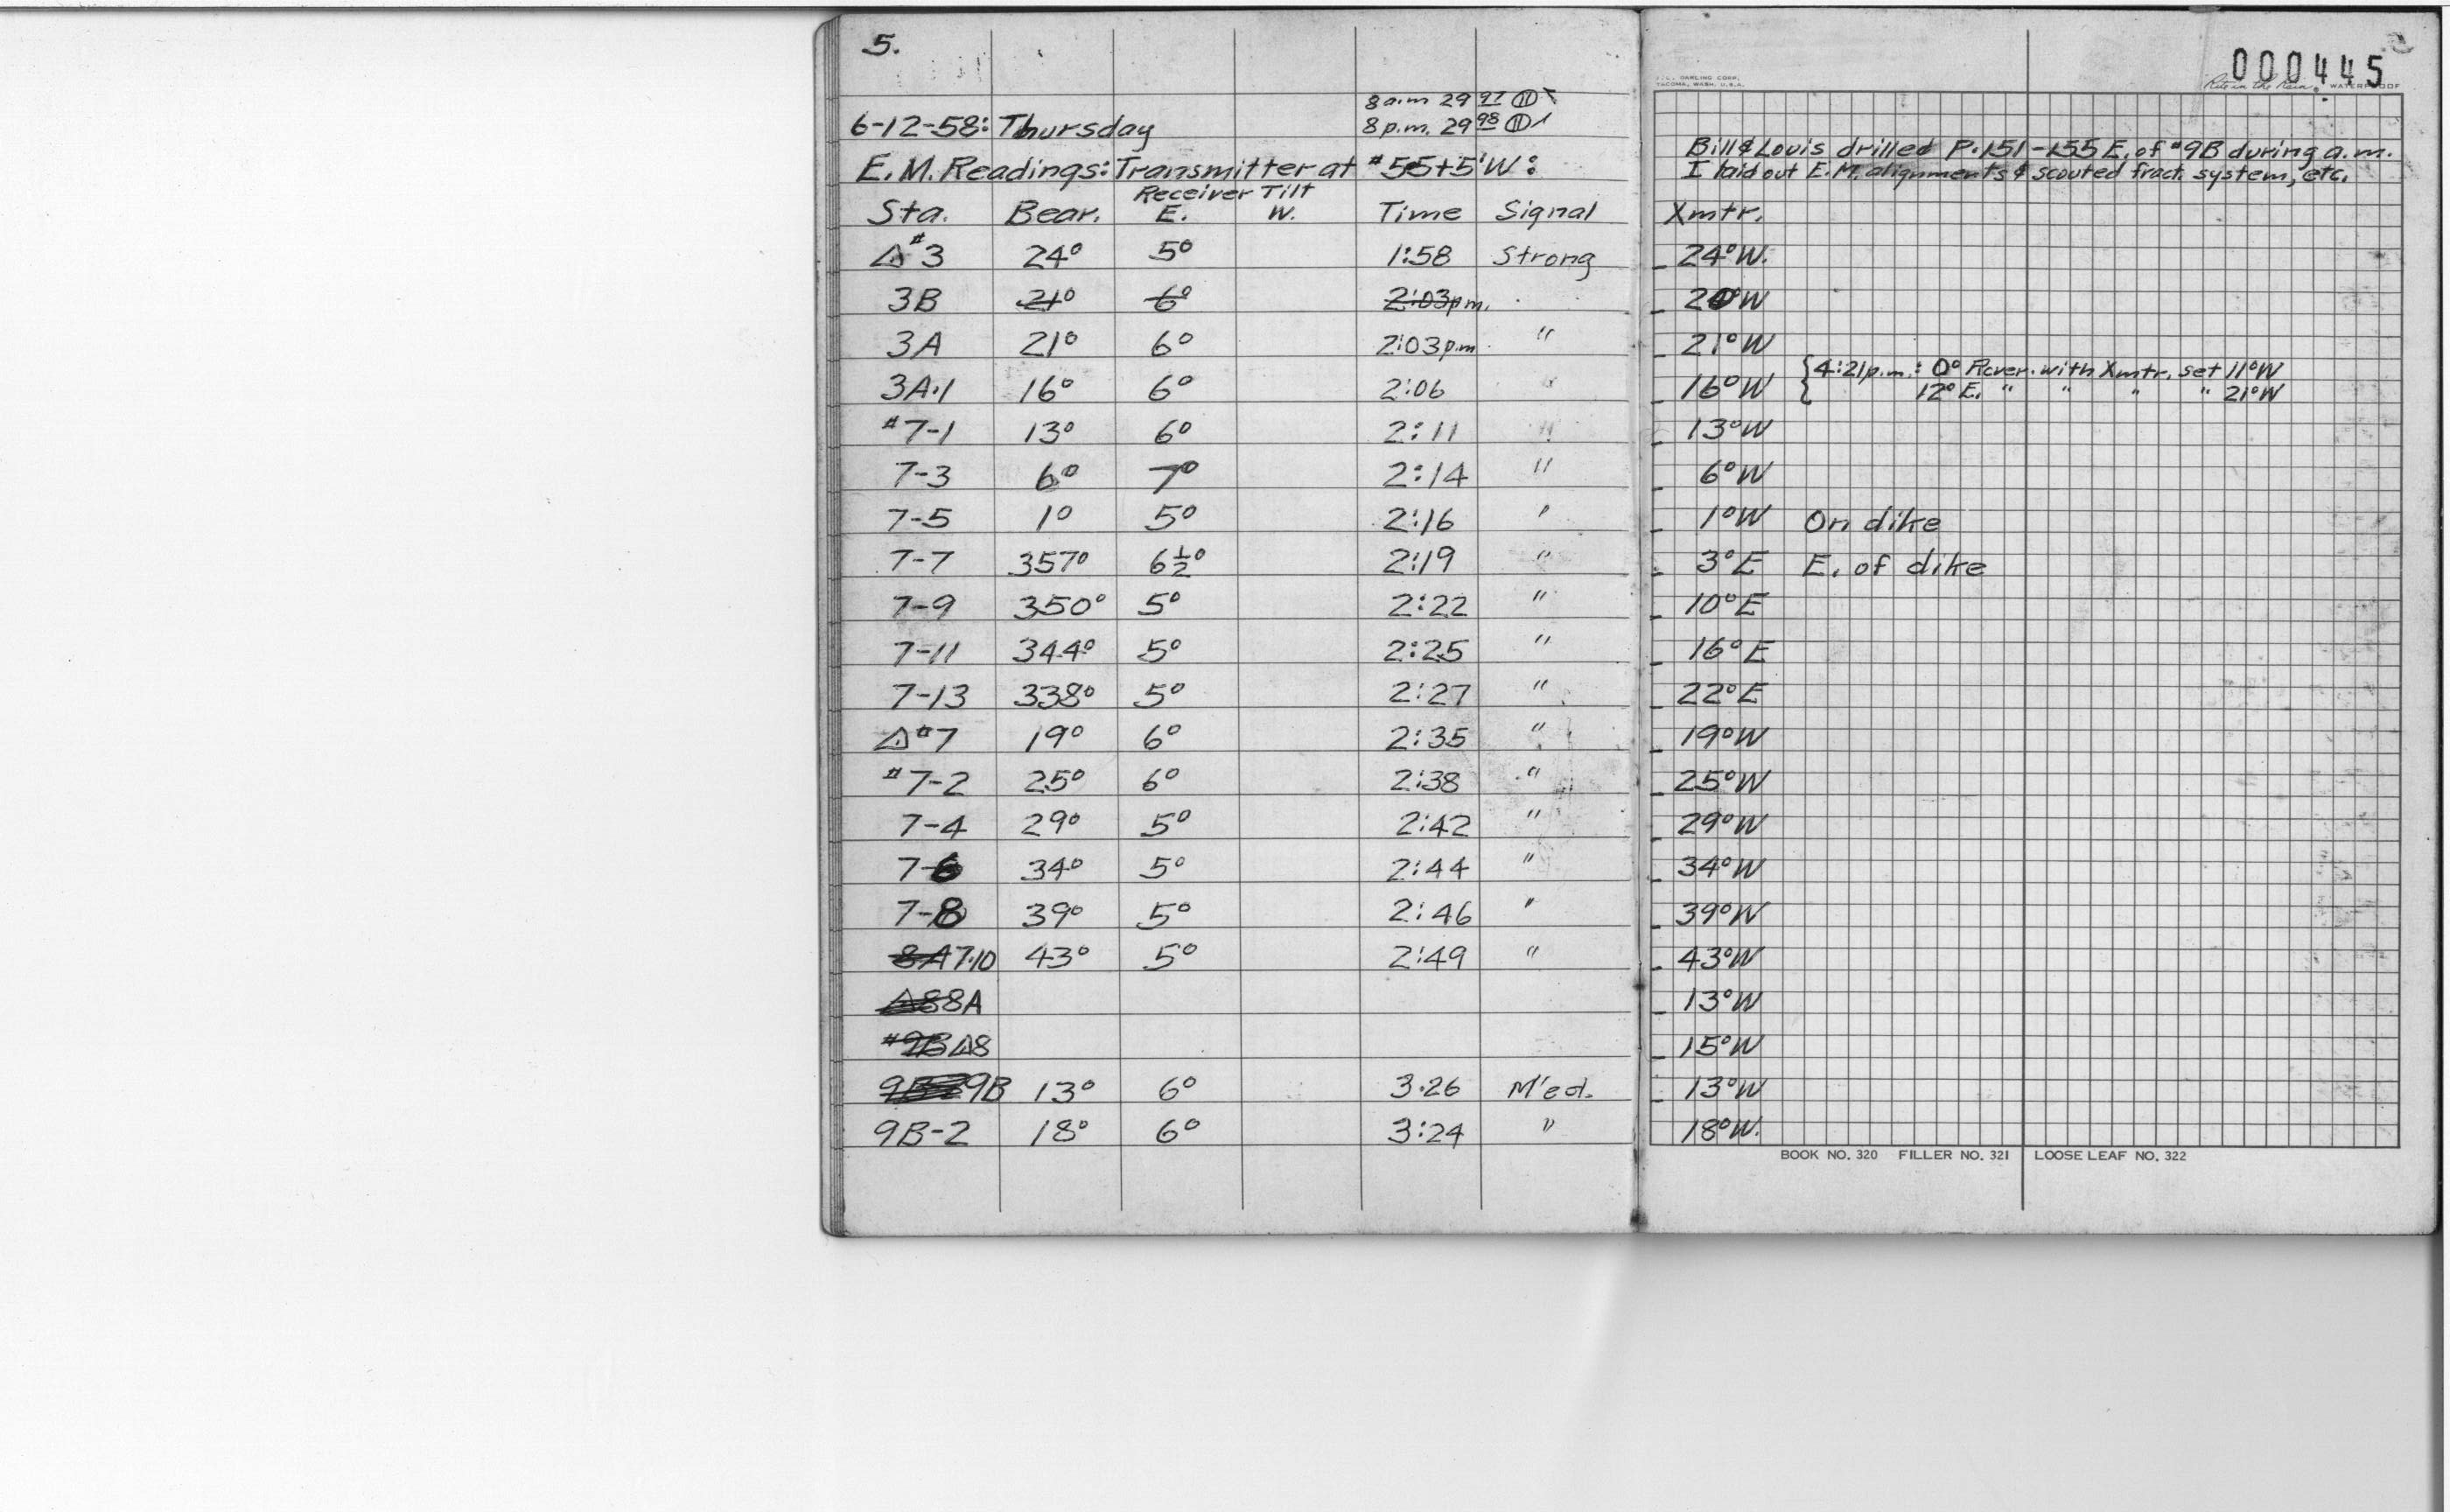 5.
000445
DARLING CORP.
TACOMA, WASH, U.S.A.
Rite in the Rain WATERPROOF
8 a.m 29 97
6-12-58: Thursday 8 p.m. 29 98
Bill & Louis drilled P.151-155 E. of #9B during a.m.
E.M. Readings: Transmitter at #55+5'W:
I laid out E.M. alignments & scouted fract. system, etc.
Receiver Tilt
Sta. Bear. E. W. Time Signal Xmtr.
△#3 24° 5° 1:58 Strong 24°W.
3B 21° 6° 2:03pm. 20°W
3A 21° 6° 2:03p.m " 21°W
4:21p.m.: 0° Rcver. with Xmtr. set 11°W
3A.1 16° 6° 2:06 " 16°W
12°E. " " " " 21°W
#7-1 13° 6° 2:11 " 13°W
7-3 6° 7° 2:14 " 6°W
7-5 1° 5° 2:16 " 1°W On dike
7-7 357° 6½° 2:19 " 3°E E. of dike
7-9 350° 5° 2:22 " 10°E
7-11 344° 5° 2:25 " 16°E
7-13 338° 5° 2:27 " 22°E
△#7 19° 6° 2:35 " 19°W
#7-2 25° 6° 2:38 " 25°W
7-4 29° 5° 2:42 " 29°W
7-6 34° 5° 2:44 " 34°W
7-8 39° 5° 2:46 " 39°W
8A 7.10 43° 5° 2:49 " 43°W
△8 8A 13°W
#9B △8 15°W
9B 13° 6° 3.26 M'ed. 13°W
9B-2 18° 6° 3:24 " 18°W.
BOOK NO. 320 FILLER NO. 321 LOOSE LEAF NO. 322